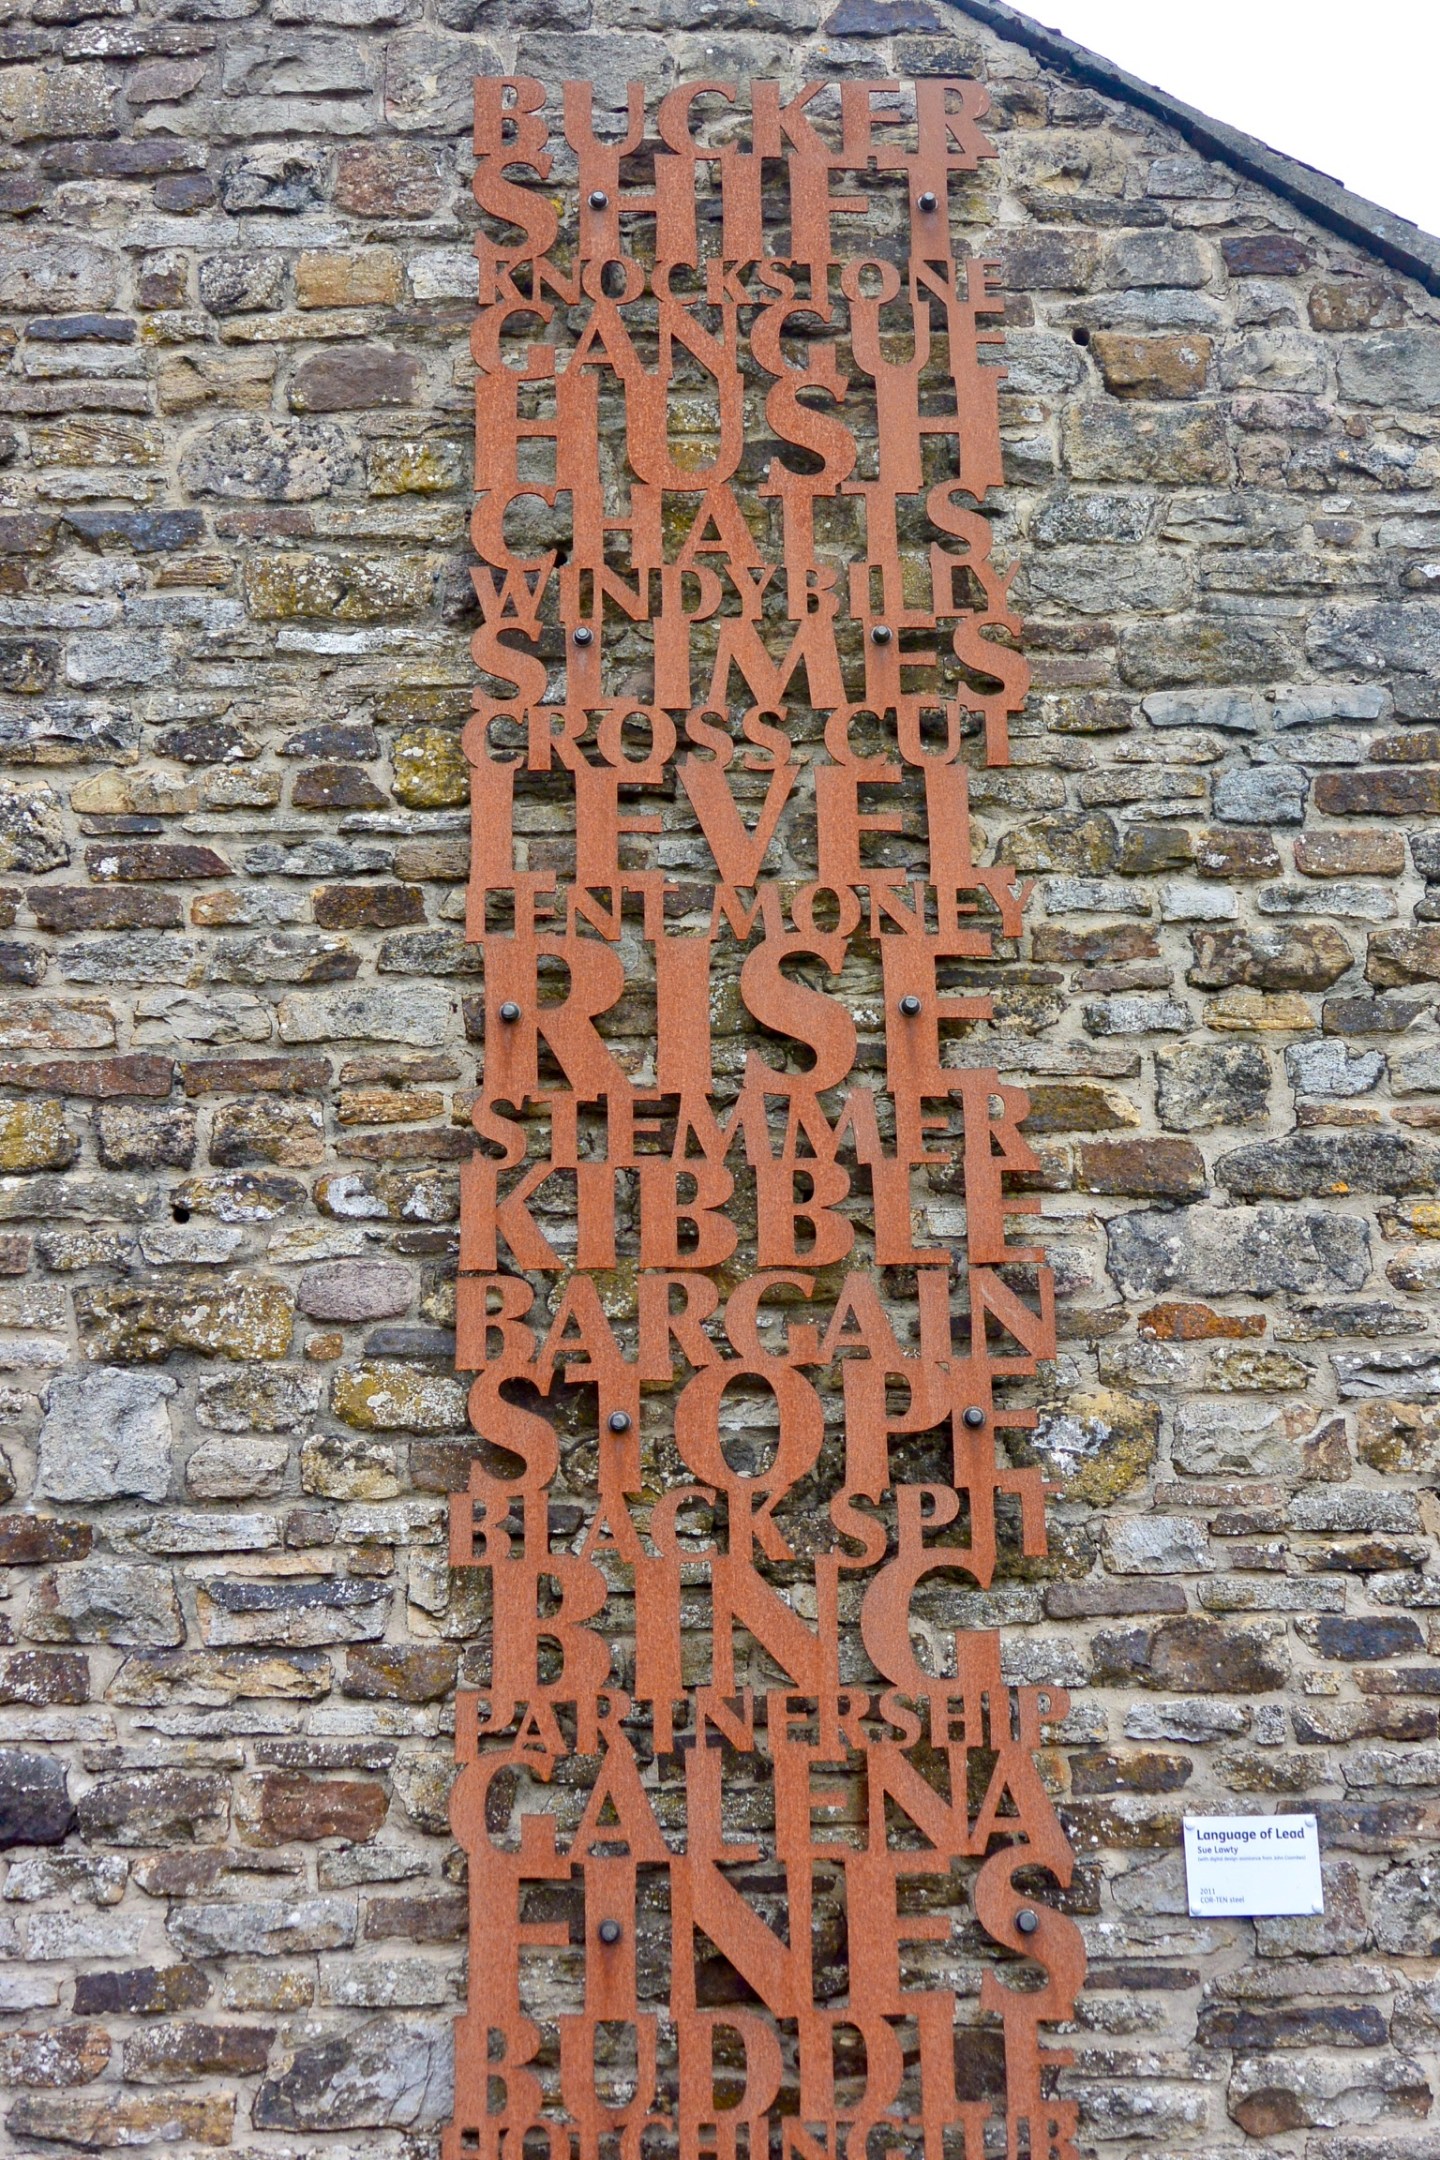 BUCKER
SHIFT
KNOCKSTONE
GANGUE
HUSH
CHATTS
WINDYBILLY
SLIMES
CROSS CUT
LEVEL
TENT MONEY
RISE
STEMMER
KIBBLE
BARGAIN
STOPE
BLACK SPIT
BING
PARTNERSHIP
GALENA
FINES
BUDDLE
HOTCHING TUB
Language of Lead
Sue Lawty
(with digital design assistance from John Coombes)
2011
COR-TEN steel